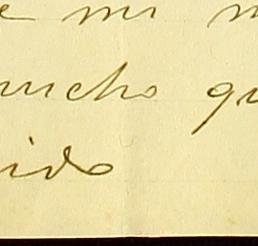 e mi m
mucho qu
ido